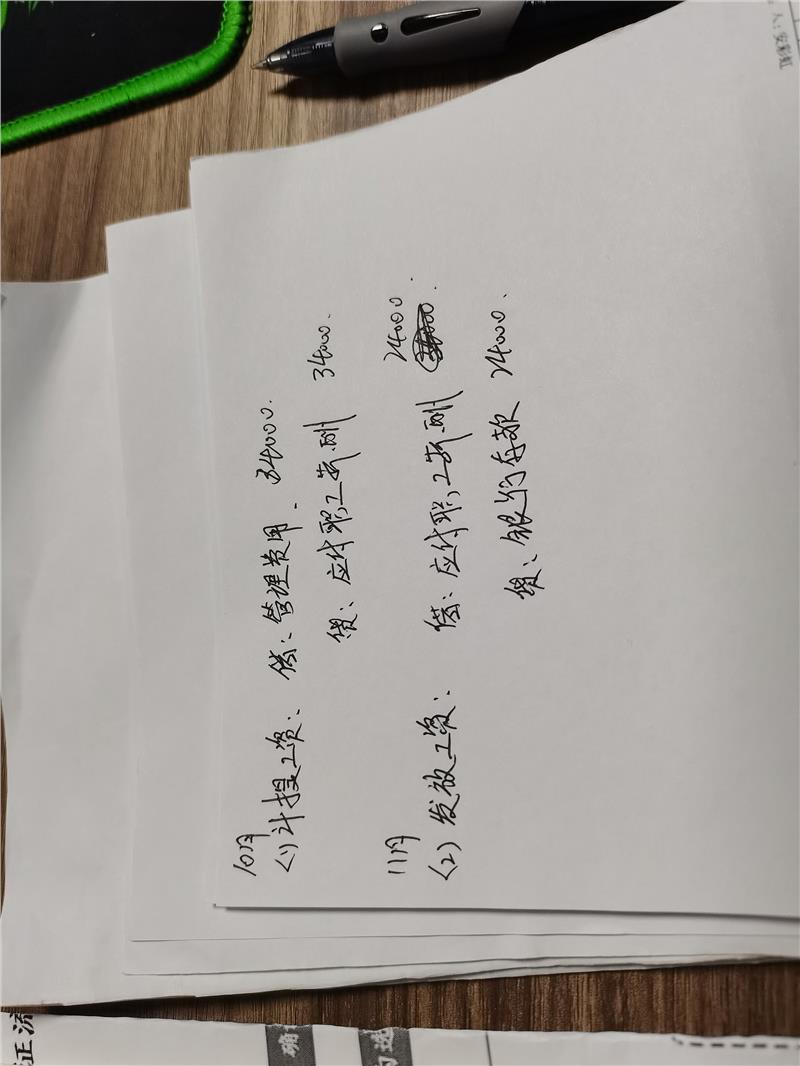 10月
(1)计提工资: 借:管理费用. 34000.
贷:应付职工薪酬 34000.
11月
24000.
(2)发放工资: 借:应付职工薪酬
贷:银行存款 24000.
人:安彩虹
正流
确
勾选